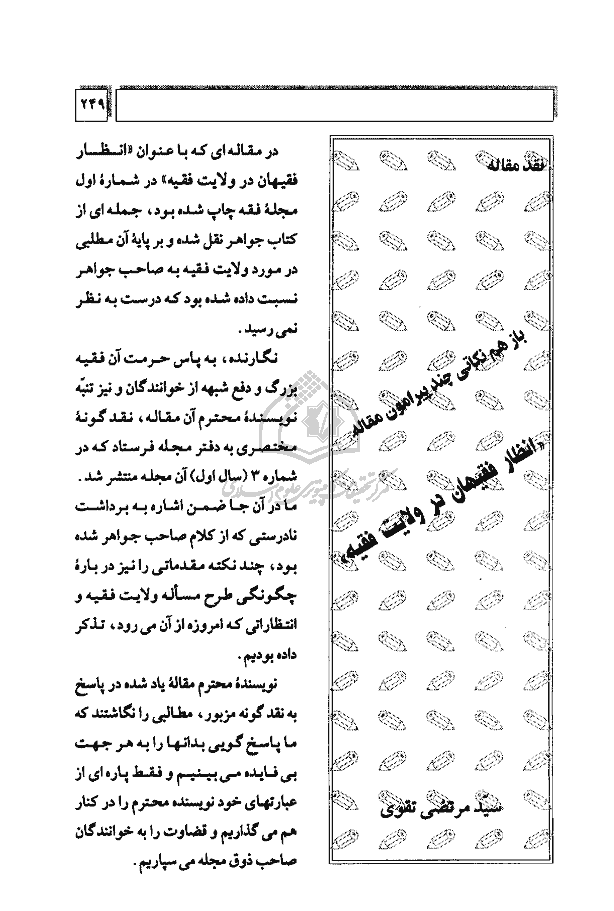 ۲۴۹
نقد مقاله
باز هم نکاتی چند پیرامون مقاله
«انظار فقیهان در ولایت فقیه»
سیّد مرتضی تقوی
در مقاله ای که با عنوان «انـظـار
فقیهان در ولایت فقیه» در شمارهٔ اول
مجلهٔ فقه چاپ شده بود، جمله ای از
کتاب جواهر نقل شده و بر پایهٔ آن مطلبی
در مورد ولایت فقیه به صاحب جواهر
نسبت داده شده بود که درست به نظر
نمی رسید.
نگارنده، به پاس حرمت آن فقیه
بزرگ و دفع شبهه از خوانندگان و نیز تنبّه
نویسندهٔ محترم آن مقاله، نقد گونهٔ
مختصری به دفتر مجله فرستاد که در
شماره ۳ (سال اول) آن مجله منتشر شد.
ما در آن جا ضمن اشاره به برداشت
نادرستی که از کلام صاحب جواهر شده
بود، چند نکته مقدماتی را نیز در بارهٔ
چگونگی طرح مسأله ولایت فقیه و
انتظاراتی که امروزه از آن می رود، تذکر
داده بودیم.
نویسندهٔ محترم مقالهٔ یاد شده در پاسخ
به نقد گونه مزبور، مطالبی را نگاشتند که
ما پاسخ گویی بدانها را به هر جهت
بی فایده می بینیم و فقط پاره ای از
عبارتهای خود نویسنده محترم را در کنار
هم می گذاریم و قضاوت را به خوانندگان
صاحب ذوق مجله می سپاریم.